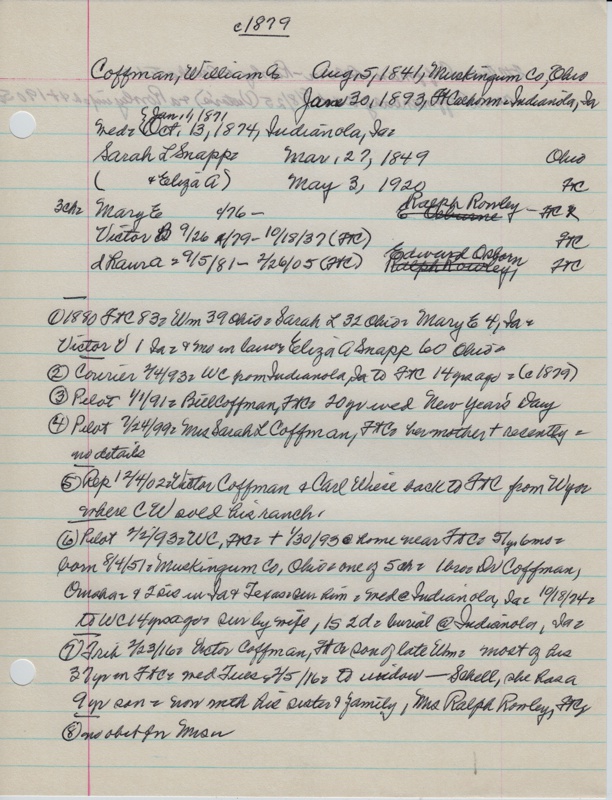 c1879
Coffman, William G Aug, 5, 1841, Muskingum Co, Ohio
Jan 30, 1893, Ft Calhoun = Indianola, Ia
& Jan 1, 1871
Med = Oct. 13, 1874, Indianola, Ia =
Sarah L Snapp = Mar, 27, 1849 Ohio
( & Eliza A) May 3, 1920 FtC
3ch = Mary E 4/76 - Ralph Rowley - FtC
Victor B 9/26 - 10/18/37 (FtC) FtC
dLaura = 9/5/81 - 2/26/05 (FtC) Edward Osborn Ralph Rowley, FtC
① 1880 FtC 83 = Wm 39 Ohio = Sarah L 32 Ohio = Mary E 4, Ia =
Victor V 1 Ia = & mo in law = Eliza A Snapp 60 Ohio =
② Courier 2/4/93 = WC from Indianola, Ia to FtC 14 yrs ago = (c1879)
③ Pilot 1/1/91 = Bill Coffman, FtC = 20 yr wed New Year's Day
④ Pilot 2/24/99 = Mrs Sarah L Coffman, FtC = her mother + recently =
no details
⑤ Rep 12/4/02 = Victor Coffman & Carl Wiese back to FtC from Wyo
where CW sved his ranch.
⑥ Pilot 2/2/93 = WC, FtC = + 1/30/93 @ home near FtC = 51 yr 6 mo =
born 8/4/51 = Muskingum Co, Ohio = one of 5 ch = 1 bro = Dr V Coffman,
Omaha = & 2 sis in Ia & Texas = sur him = med @ Indianola, Ia = 10/18/74 =
to WC 14 yrs ago = sur by wife, 1s 2d = burial @ Indianola, Ia =
⑦ Trib 2/23/16 = Victor Coffman, FtC = son of late Wm = most of his
37 yr in FtC = med Tues 2/5/16 = to widow — Schell, she has a
9 yr son = now with his sister & family, Mrs Ralph Rowley, FtC
⑧ no obit for Mrs